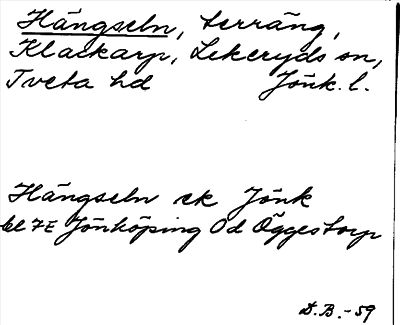 Hängseln, terräng,
Klackarp, Lekeryds sn,
Tveta hd Jönk. l.
Hängseln ek Jönk
bl 7E Jönköping Od Öggestorp
D.B.-59